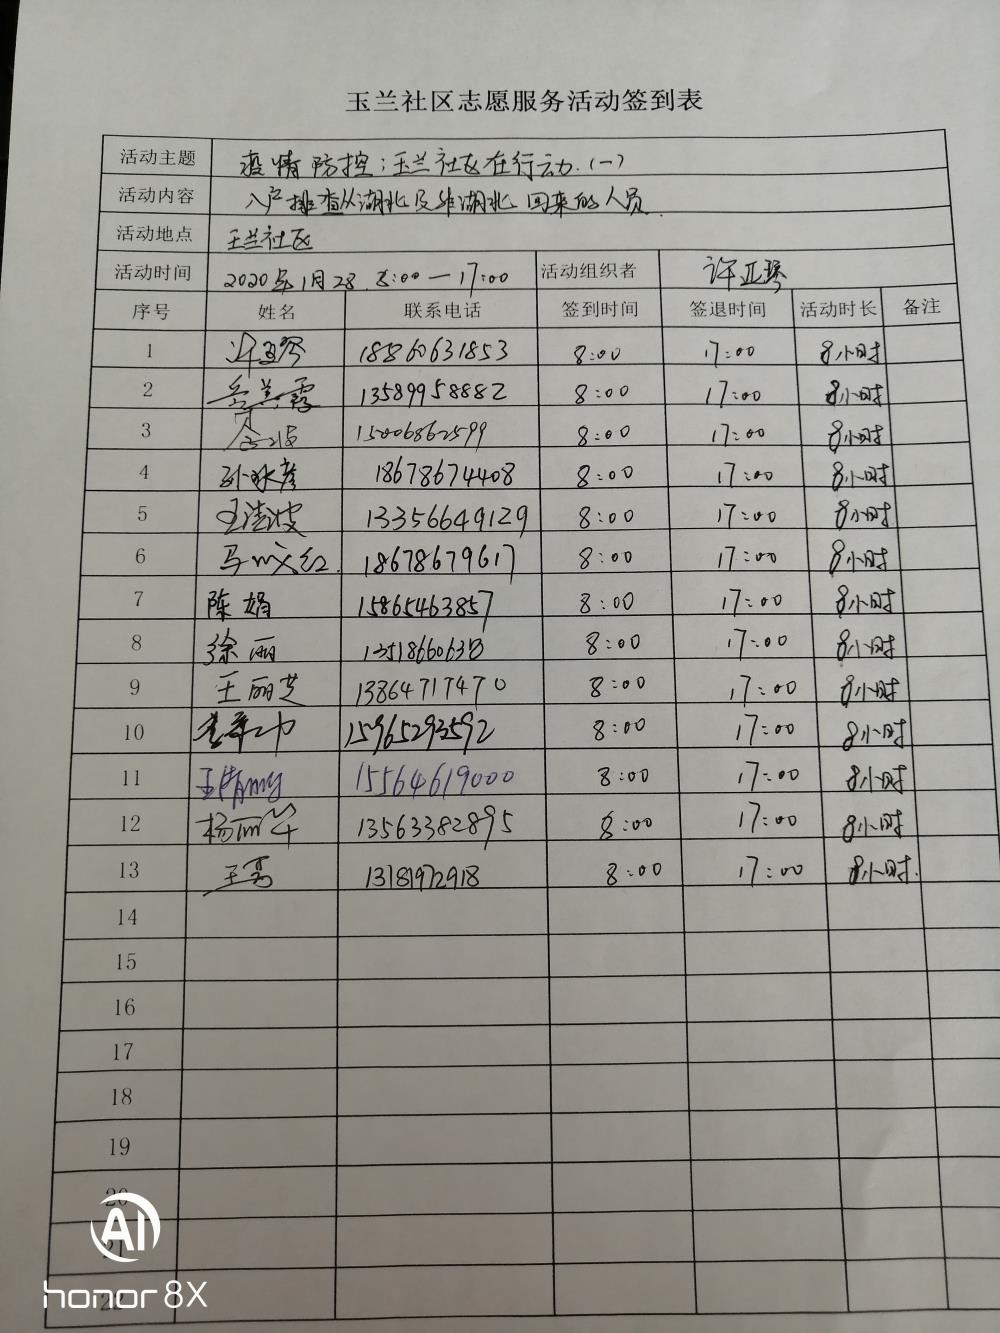 玉兰社区志愿服务活动签到表
活动主题 疫情防控：玉兰社区在行动.(一)
活动内容 入户排查从湖北及非湖北回来的人员.
活动地点 玉兰社区
活动时间 2020年1月28. 8:00—17:00 活动组织者 许亚琴
序号 姓名 联系电话 签到时间 签退时间 活动时长 备注
1 许亚琴 18560631853 8:00 17:00 8小时
2 13589958882 8:00 17:00 8小时
3 15006862599 8:00 17:00 8小时
4 18678674408 8:00 17:00 8小时
5 13356649129 8:00 17:00 8小时
6 18678679617 8:00 17:00 8小时
7 陈娟 15865463857 8:00 17:00 8小时
8 徐丽 8:00 17:00 8小时
9 王丽芝 13864717470 8:00 17:00 8小时
10 15965293592 8:00 17:00 8小时
11 15564619000 8:00 17:00 8小时
12 13563382895 8:00 17:00 8小时
13 13181972918 8:00 17:00 8小时.
14
15
16
17
18
19
20
21
22
AI
honor 8X